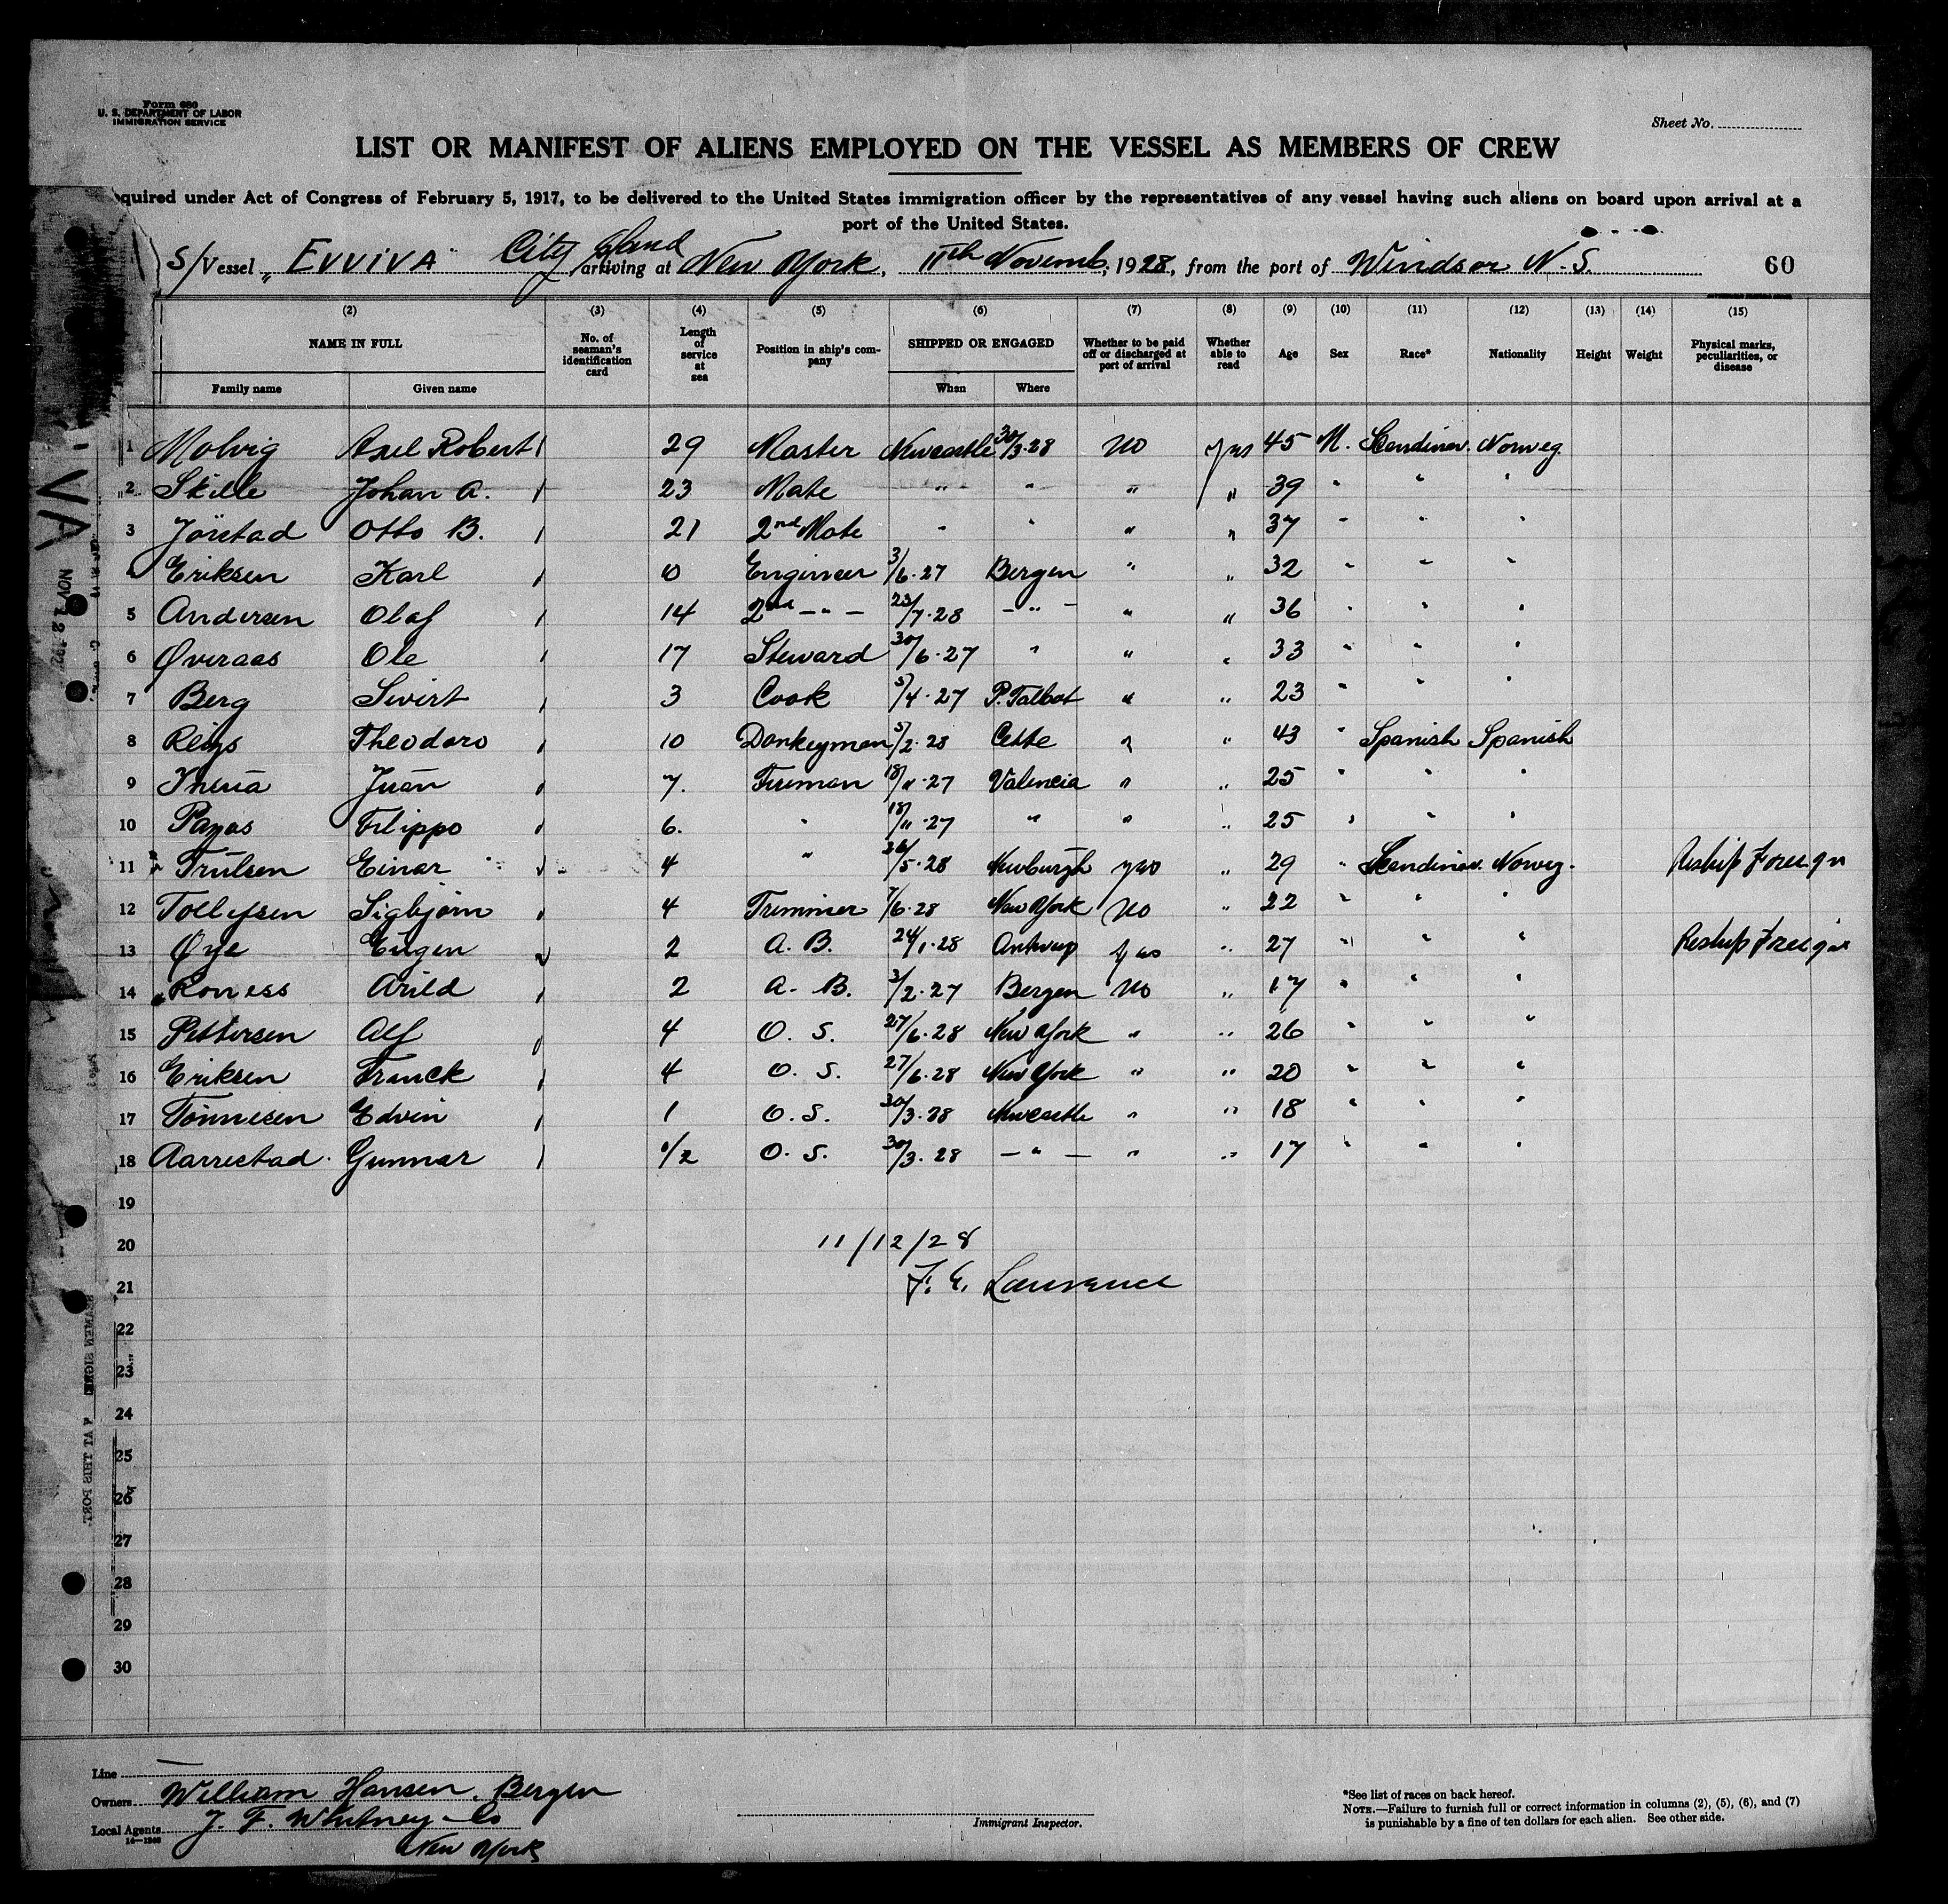 Form 680
U. S. DEPARTMENT OF LABOR
IMMIGRATION SERVICE
Sheet No.
LIST OR MANIFEST OF ALIENS EMPLOYED ON THE VESSEL AS MEMBERS OF CREW
quired under Act of Congress of February 5, 1917, to be delivered to the United States immigration officer by the representatives of any vessel having such aliens on board upon arrival at a
port of the United States.
S/Vessel „EVVIVA" City Island arriving at New York, 11th Novemb, 1928, from the port of Windsor N.S. 60
(2) (3) (4) (5) (6) (7) (8) (9) (10) (11) (12) (13) (14) (15)
NAME IN FULL No. of seaman's identification card Length of service at sea Position in ship's company SHIPPED OR ENGAGED Whether to be paid off or discharged at port of arrival Whether able to read Age Sex Race* Nationality Height Weight Physical marks, peculiarities, or disease
Family name Given name When Where
1 Molvig Axel Robert 29 Master Newcastle 30/3-28 No yes 45 M. Scandinav. Norweg.
2 Skille Johan A. 23 Mate " " " " 39 " " "
3 Jörstad Otto B. 21 2nd Mate " " " " 37 " " "
Eriksen Karl 10 Engineer 3/6-27 Bergen " " 32 " " "
5 Andersen Olaf 14 2nd -"- 23/7-28 -"- " " 36 " " "
6 Øveraas Ole 17 Steward 30/6-27 " " " 33 " " "
7 Berg Sivirt 3 Cook 5/4-27 P.Talbot " " 23 " " "
8 Theodoro 10 Donkeyman 5/2-28 Cette " " 43 " Spanish Spanish
9 Juan 7. Fireman 18/11-27 Valencia " " 25 " " "
10 Payas Filippo 6. " 18/11-27 " " " 25 " " "
11 Trulsen Einar 4 " 26/5-28 Newburgh yes " 29 " Scandinav. Norweg. Reship Foreign
12 Tollefsen Sigbjørn 4 Trimmer 7/6-28 New York No " 22 " " "
13 Øye Eugen 2 A. B. 24/1-28 Antwerp yes " 27 " " " Reship Foreign
14 Roness Arild 2 A. B. 3/2-27 Bergen No " 17 " " "
15 Pettersen Alf 4 O. S. 27/6-28 New York " " 26 " " "
16 Eriksen Franck 4 O. S. 27/6-28 New York " " 20 " " "
17 Tönnesen Edvin 1 O. S. 30/3-28 Newcastle " " 18 " " "
18 Aarrestad Gunnar 1/2 O. S. 30/3-28 -"- " " 17 " " "
19
20 11/12/28
21 F. E. Lawrence
22
23
24
25
26
27
28
29
30
Line
Owners William Hansen, Bergen
Local Agents J. F. Whitney & Co
New York
14-1240
Immigrant Inspector.
*See list of races on back hereof.
NOTE.—Failure to furnish full or correct information in columns (2), (5), (6), and (7)
is punishable by a fine of ten dollars for each alien. See other side.